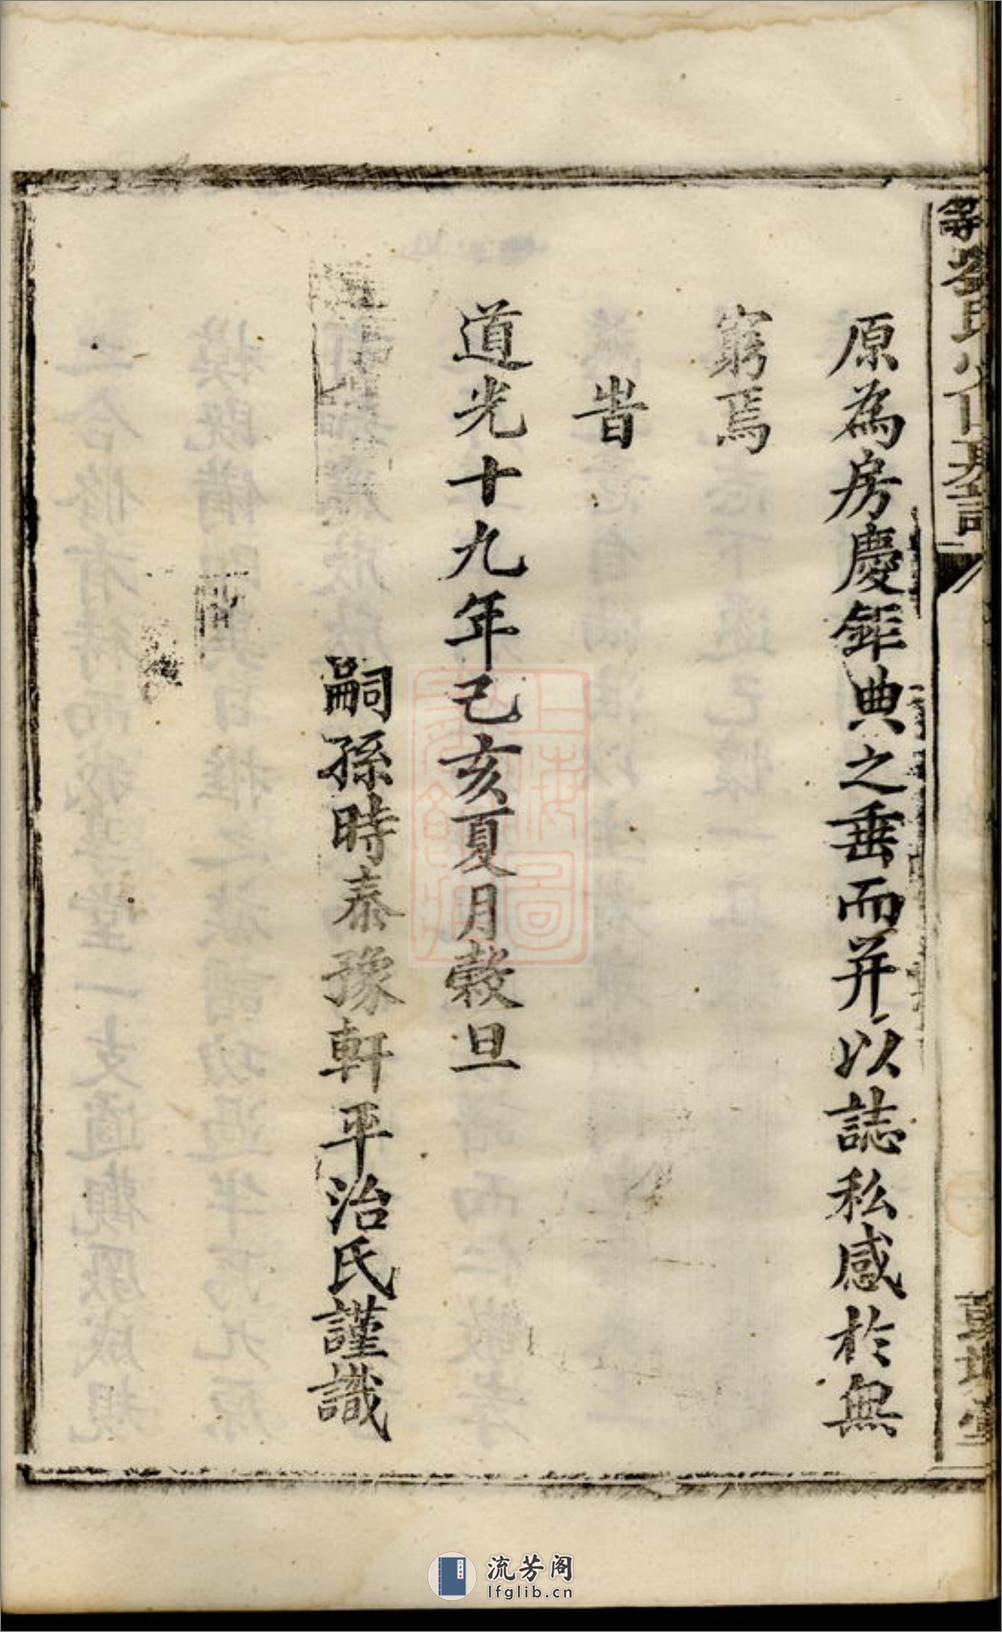 原為房慶年典之垂而并以誌私感於無
窮焉
旹
道光十九年己亥夏月穀旦
嗣孫時泰豫軒平治氏謹識
流芳阁
lfglib.cn